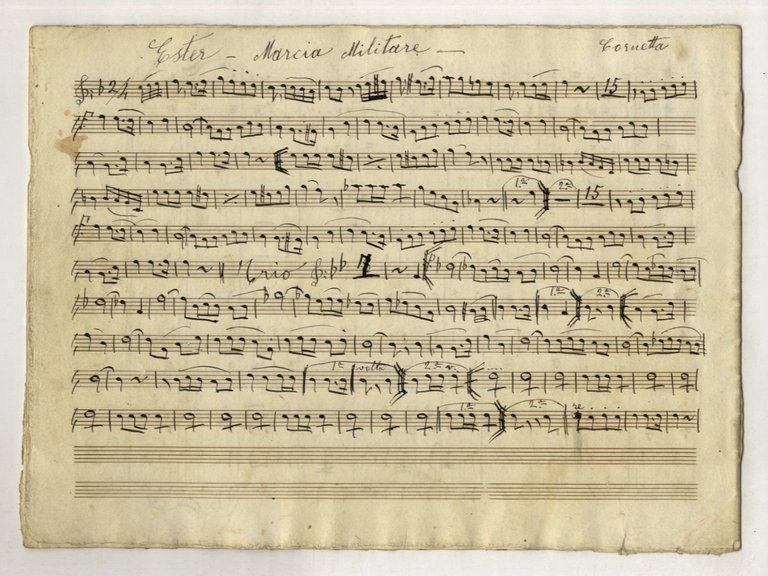 Ester - Marcia Militare -
Cornetta
2/4
15
1.a 2.a 15
Trio 1
1.a 2.a
1.a volta 2.a v.
1.a 2.a